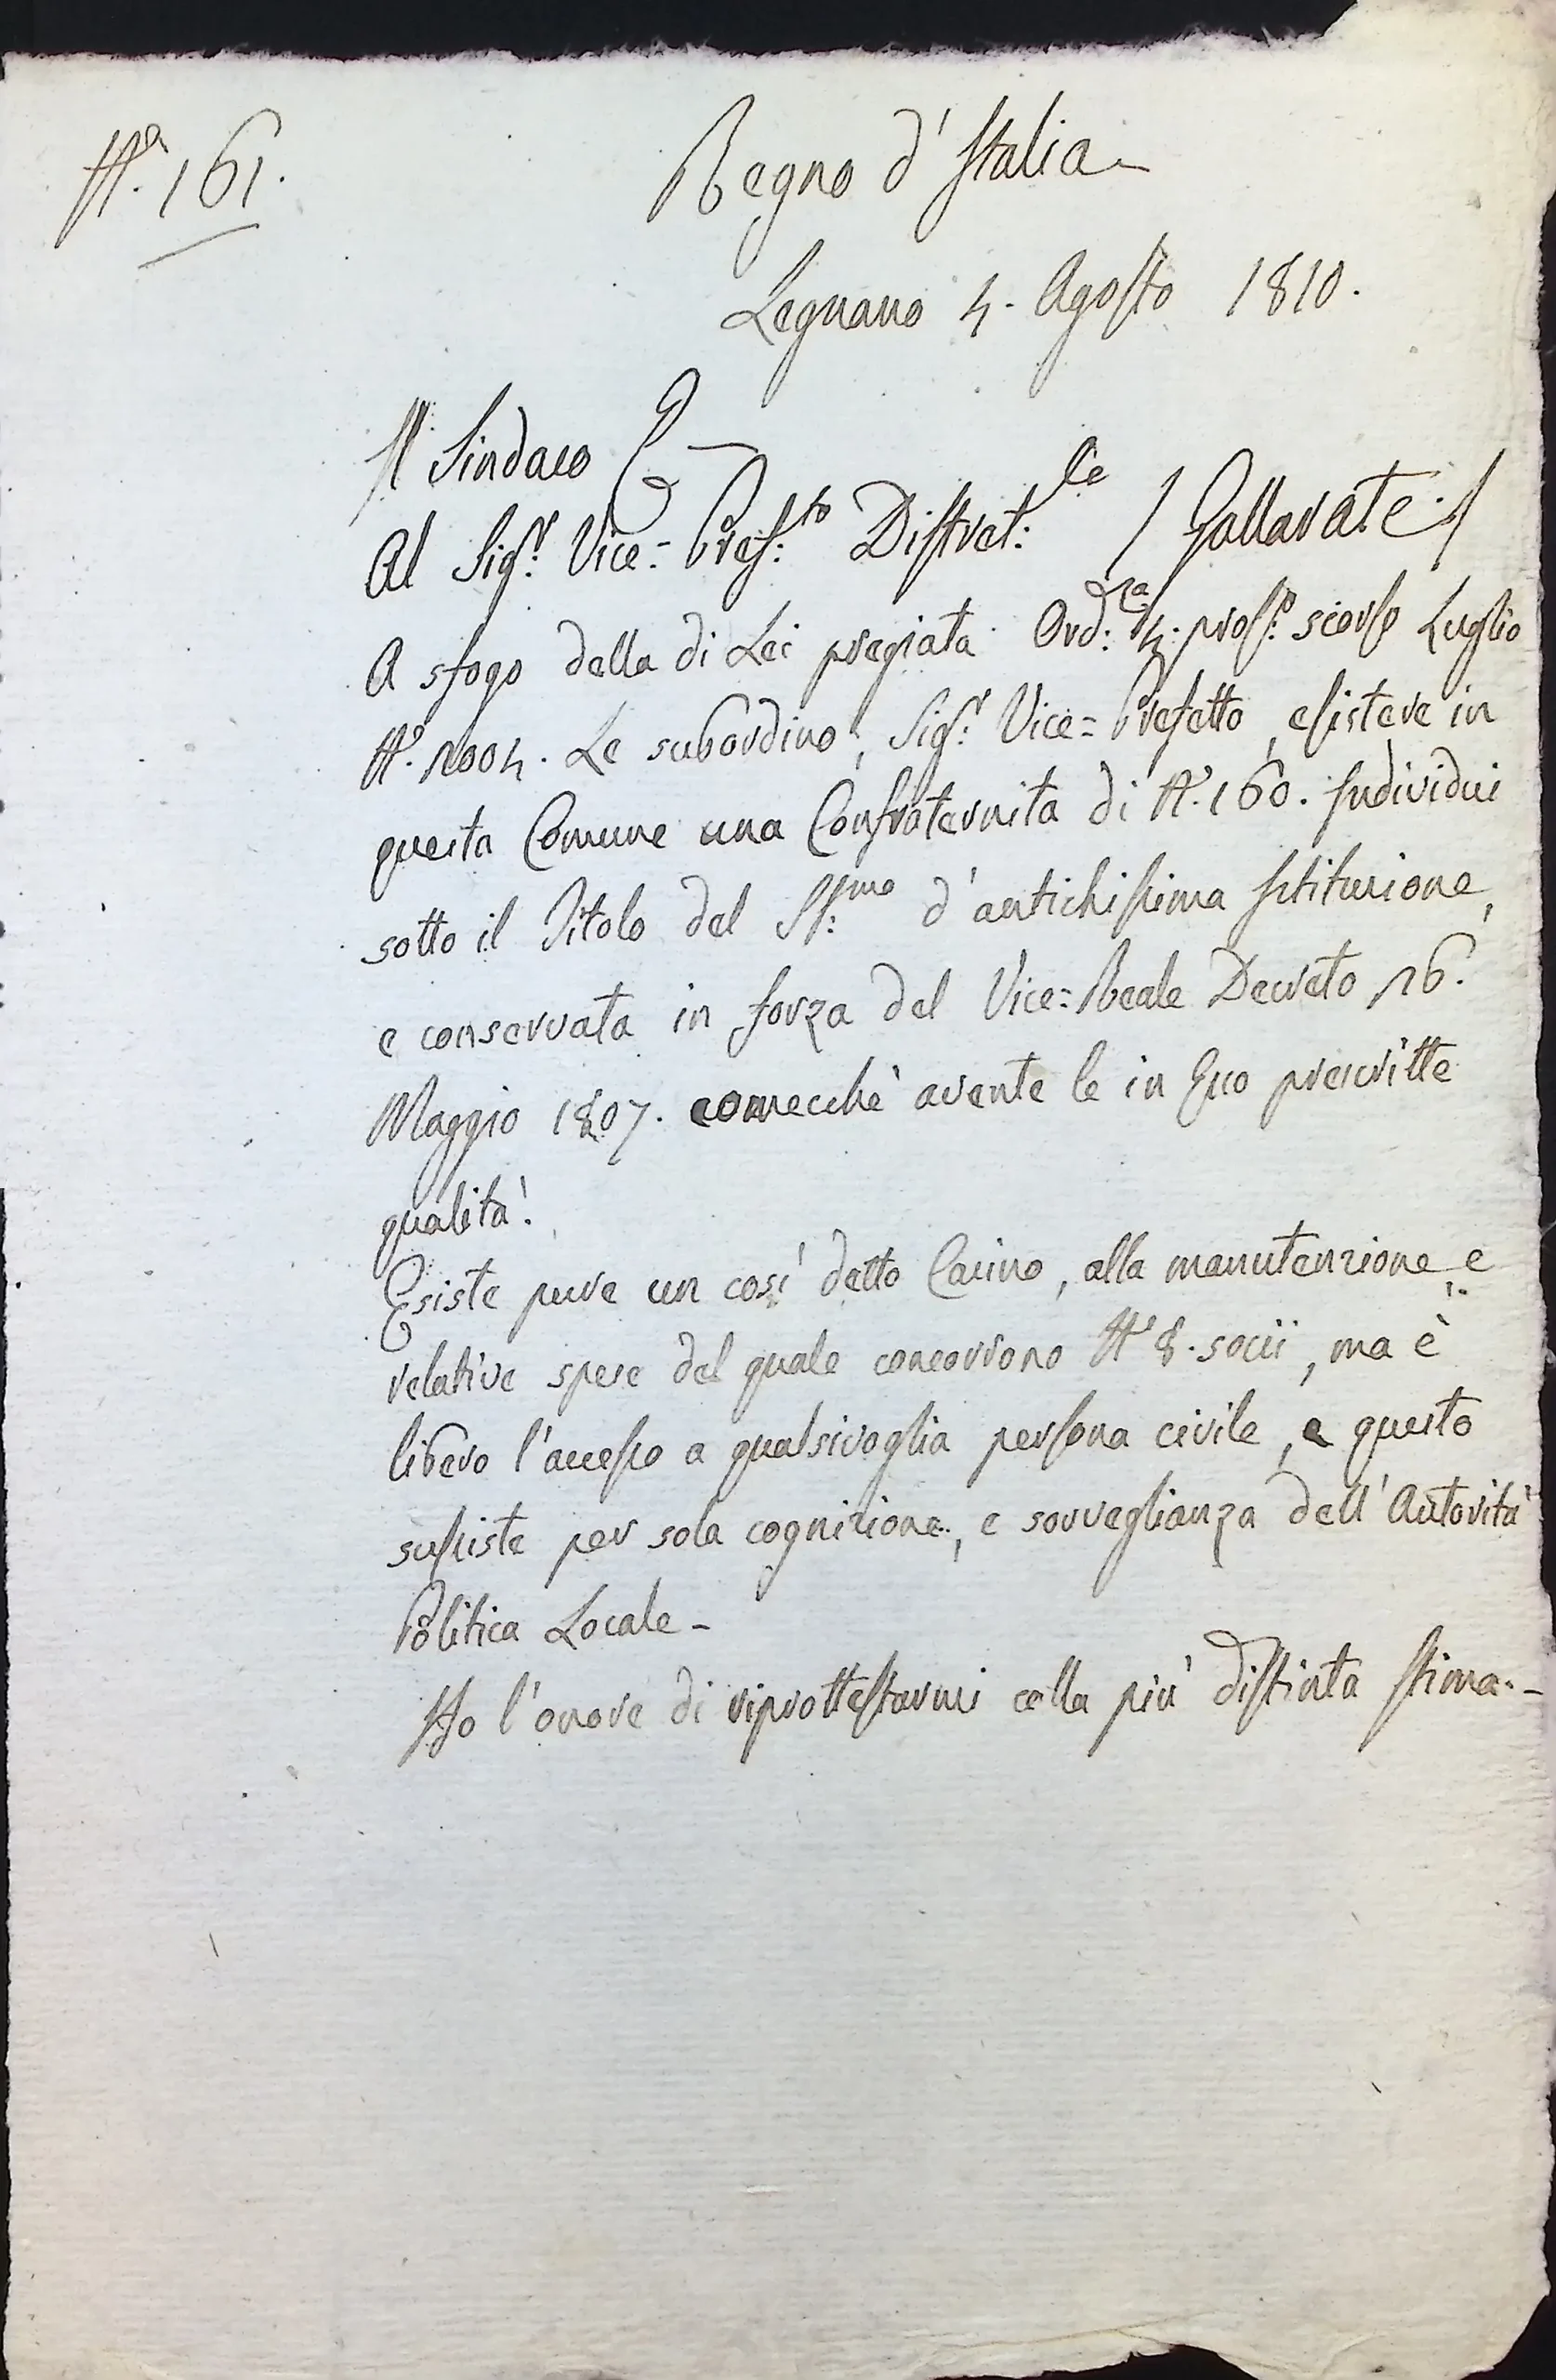 N.º 161.
Regno d'Italia
Legnano 4. Agosto 1810.
Il Sindaco
Al Sig.r Vice=Pref.to Distret.le / Gallarate./
A sfogo della di Lei pregiata Ord.za 4. pross.o scorso Luglio
N.º 2004. Le subordino, Sig.r Vice=Prefetto, esistere in
questa Comune una Confraternita di N.º 160. Individui
sotto il Titolo del SS.mo d'antichissima Istituzione,
e conservata in forza del Vice=Reale Decreto 26.
Maggio 1807. comecchè avente le in Esso prescritte
qualità.
Esiste pure un così detto Casino, alla manutenzione, e
relative spese del quale concorrono N.º 8. socii, ma è
libero l'accesso a qualsivoglia persona civile, e questo
sussiste per sola cognizione, e sorveglianza dell'Autorità
Politica Locale -
Ho l'onore di riprottestarmi colla più distinta stima.-